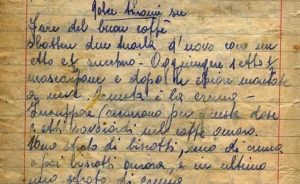 Gota tirami su
Fare del buon caffè
Sbattere due tuorli d'uovo con un
etto di zucchero. Aggiungere 3 etti
mascarpone e dopo le chiare montate
a neve. Questa è la crema
Inzuppare (occorrono per questa dose
3 etti) savoiardi nel caffè amaro.
Uno strato di biscotti, uno di crema
e poi biscotti ancora, e in ultimo
uno strato di crema